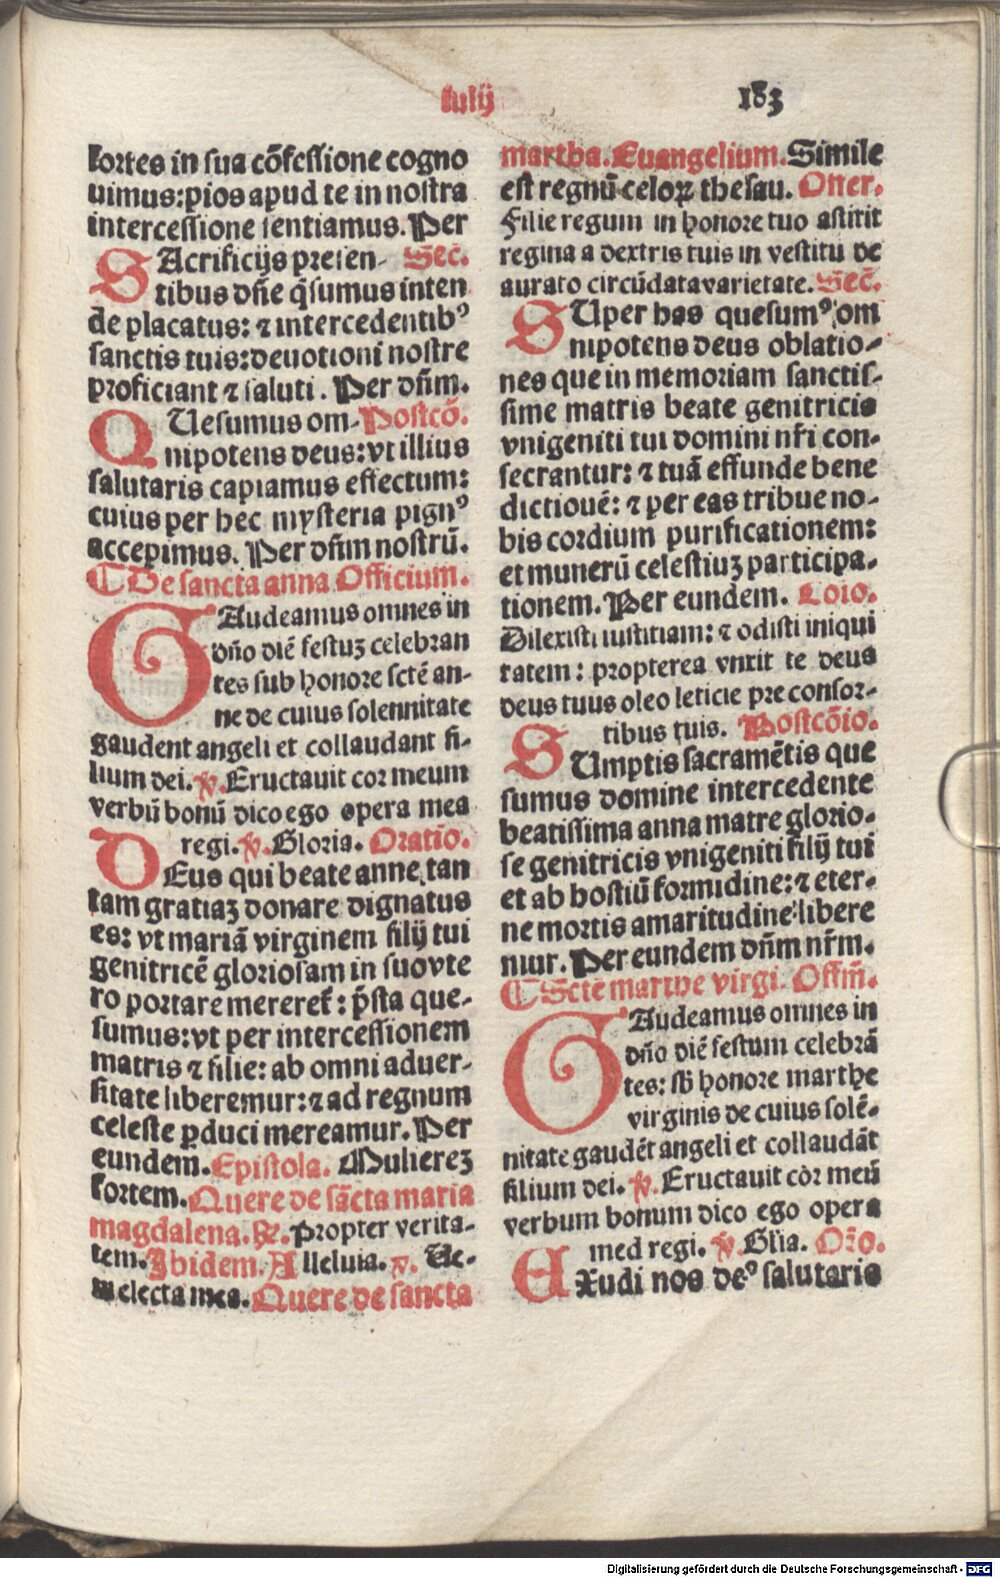 Iulij 183
fortes in sua cõfessione cogno
uimus: pios apud te in nostra
intercessione sentiamus. Per
SAcrificijs presen- Sec.
tibus dñe q̃sumus inten
de placatus: ⁊ intercedentibꝰ
sanctis tuis: deuotioni nostre
proficiant ⁊ saluti. Per dñm.
QUesumus om- Postcõ.
nipotens deus: vt illius
salutaris capiamus effectum:
cuius per hec mysteria pignꝰ
accepimus. Per dñm nostrũ.
¶ De sancta anna Officium.
GAudeamus omnes in
dño diẽ festuꝫ celebran
tes sub honore sctẽ an-
ne de cuius solennitate
gaudent angeli et collaudant fi-
lium dei. ℣. Eructauit cor meum
verbũ bonũ dico ego opera mea
regi. ℣. Gloria. Oratio.
DEus qui beate anne tan
tam gratiaꝫ donare dignatus
es: vt mariã virginem filij tui
genitricẽ gloriosam in suo vte
ro portare mereret̃: p̃sta que-
sumus: vt per intercessionem
matris ⁊ filie: ab omni aduer-
sitate liberemur: ⁊ ad regnum
celeste ꝑduci mereamur. Per
eundem. Epistola. Mulierеꝫ
fortem. Quere de sãcta maria
magdalena. ℟. Propter verita-
tem. Ibidem. Alleluia. ℣. Ue-
ni electa mea. Quere de sancta
martha. Euangelium. Simile
est regnũ celoꝝ thesau. Offer.
Filie regum in honore tuo astitit
regina a dextris tuis in vestitu de
aurato circũdata varietate. Sec̃.
SUper has quesumꝰ om
nipotens deus oblatio-
nes que in memoriam sanctis-
sime matris beate genitricis
vnigeniti tui domini nr̃i con-
secrantur: ⁊ tuã effunde bene
dictionẽ: ⁊ per eas tribue no-
bis cordium purificationem:
et munerũ celestiuꝫ participa-
tionem. Per eundem. Coio.
Dilexisti iustitiam: ⁊ odisti iniqui
tatem: propterea vnxit te deus
deus tuus oleo leticie pre consor-
tibus tuis. Postcõio.
SUmptis sacramẽtis que
sumus domine intercedente
beatissima anna matre glorio-
se genitricis vnigeniti filij tui
et ab hostiũ formidine: ⁊ eter-
ne mortis amaritudine libere
mur. Per eundem dñm nr̃m.
¶ Sctẽ marthe virgi. Offm̃.
GAudeamus omnes in
dño diẽ festum celebrã
tes: sb̃ honore marthe
virginis de cuius solẽ-
nitate gaudẽt angeli et collaudãt
filium dei. ℣. Eructauit cor meũ
verbum bonum dico ego opera
mea regi. ℣. Glia. Or̃o.
EXudi nos deꝰ salutaris
Digitalisierung gefördert durch die Deutsche Forschungsgemeinschaft - DFG